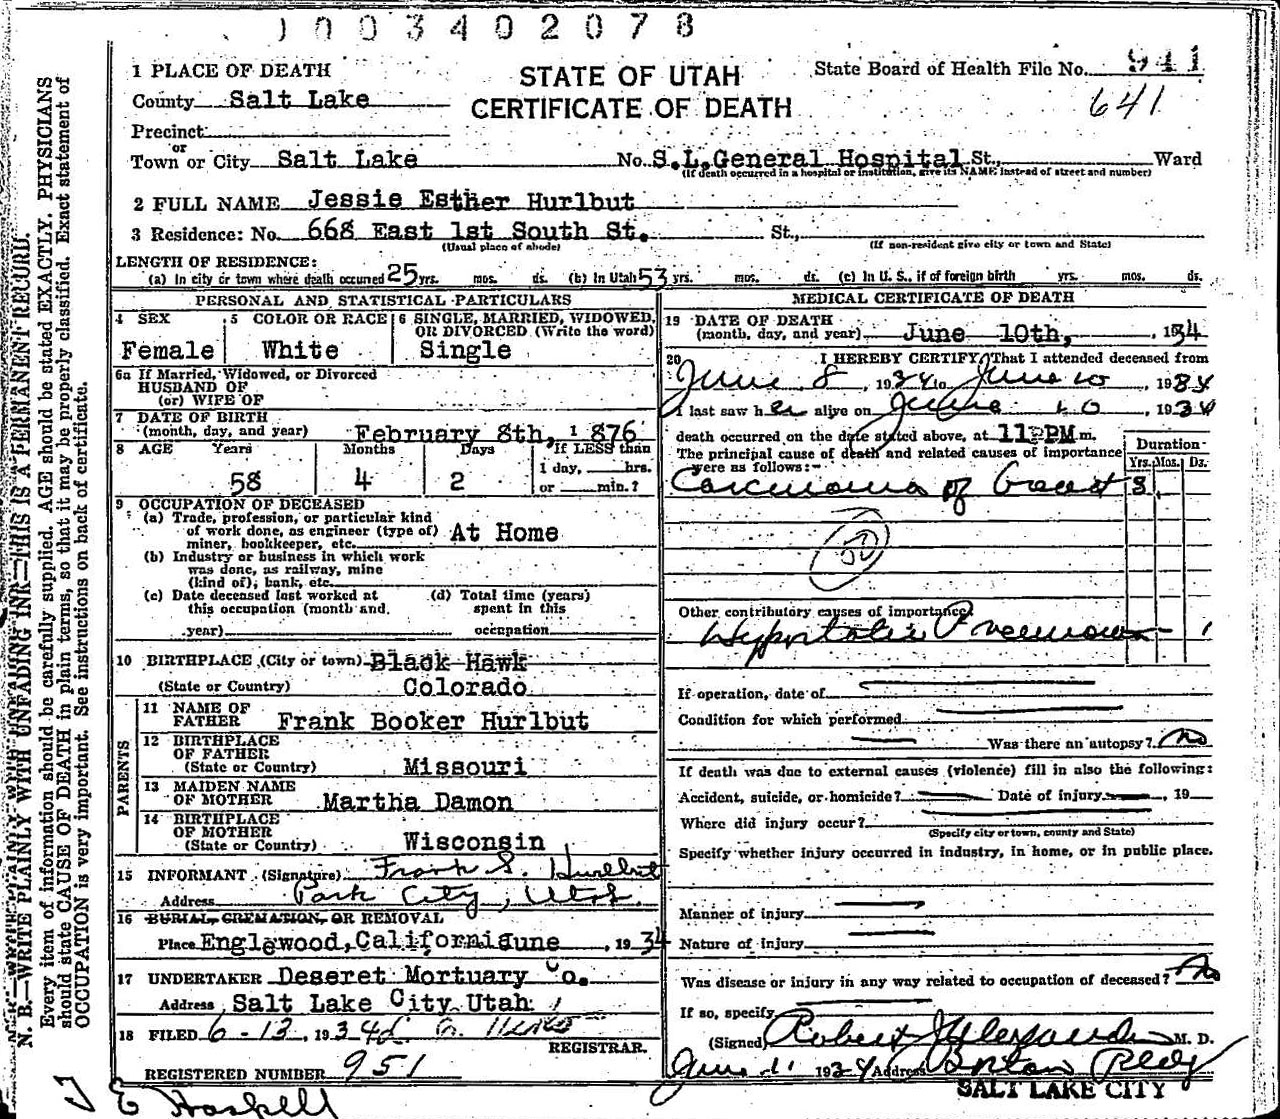 1003402078
1 PLACE OF DEATH
STATE OF UTAH
CERTIFICATE OF DEATH
State Board of Health File No. 941
641
County Salt Lake
Precinct
or
Town or City Salt Lake No. S.L.General Hospital St., Ward
(If death occurred in a hospital or institution, give its NAME instead of street and number)
2 FULL NAME Jessie Esther Hurlbut
3 Residence: No. 668 East 1st South St. St.,
(Usual place of abode) (If non-resident give city or town and State)
LENGTH OF RESIDENCE:
(a) In city or town where death occurred 25 yrs. mos. ds. (b) In Utah 53 yrs. mos. ds. (c) In U. S., if of foreign birth yrs. mos. ds.
PERSONAL AND STATISTICAL PARTICULARS
4 SEX
Female
5 COLOR OR RACE
White
6 SINGLE, MARRIED, WIDOWED,
OR DIVORCED (Write the word)
Single
6a If Married, Widowed, or Divorced
HUSBAND OF
(or) WIFE OF
7 DATE OF BIRTH
(month, day, and year) February 8th, 1876
8 AGE Years Months Days If LESS than
1 day, hrs.
58 4 2 or min.?
9 OCCUPATION OF DECEASED
(a) Trade, profession, or particular kind
of work done, as engineer (type of)
miner, bookkeeper, etc. At Home
(b) Industry or business in which work
was done, as railway, mine
(kind of), bank, etc.
(c) Date deceased last worked at
this occupation (month and
year)
(d) Total time (years)
spent in this
occupation
10 BIRTHPLACE (City or town) Black Hawk
(State or Country) Colorado
PARENTS
11 NAME OF
FATHER Frank Booker Hurlbut
12 BIRTHPLACE
OF FATHER
(State or Country) Missouri
13 MAIDEN NAME
OF MOTHER Martha Damon
14 BIRTHPLACE
OF MOTHER
(State or Country) Wisconsin
15 INFORMANT (Signature) Frank S. Hurlbut
Address Park City, Utah.
16 BURIAL, CREMATION, OR REMOVAL
Place Englewood, California June , 1934
17 UNDERTAKER Deseret Mortuary Co.
Address Salt Lake City Utah
18 FILED 6-13, 1934
REGISTRAR.
REGISTERED NUMBER 951
E Haskell
MEDICAL CERTIFICATE OF DEATH
19 DATE OF DEATH
(month, day, and year) June 10th, , 1934
20 I HEREBY CERTIFY, That I attended deceased from
June 8, 1934 to June 10, 1934
I last saw her alive on June 10, 1934
death occurred on the date stated above, at 11 PM m.
The principal cause of death and related causes of importance
were as follows:-
Duration
Yrs. Mos. Ds.
Carcinoma of breast 3
50
Other contributory causes of importance
Hypostatic Pneumonia - 1
If operation, date of
Condition for which performed
Was there an autopsy? No
If death was due to external causes (violence) fill in also the following:
Accident, suicide, or homicide? Date of injury , 19
Where did injury occur?
(Specify city or town, county and State)
Specify whether injury occurred in industry, in home, or in public place.
Manner of injury
Nature of injury
Was disease or injury in any way related to occupation of deceased? No
If so, specify
(Signed) Robert J Alexander M. D.
June 11 1934 Address Boston Bldg
SALT LAKE CITY
N. B.—WRITE PLAINLY WITH UNFADING INK—THIS IS A PERMANENT RECORD.
Every item of information should be carefully supplied. AGE should be stated EXACTLY. PHYSICIANS
should state CAUSE OF DEATH in plain terms, so that it may be properly classified. Exact statement of
OCCUPATION is very important. See instructions on back of certificate.